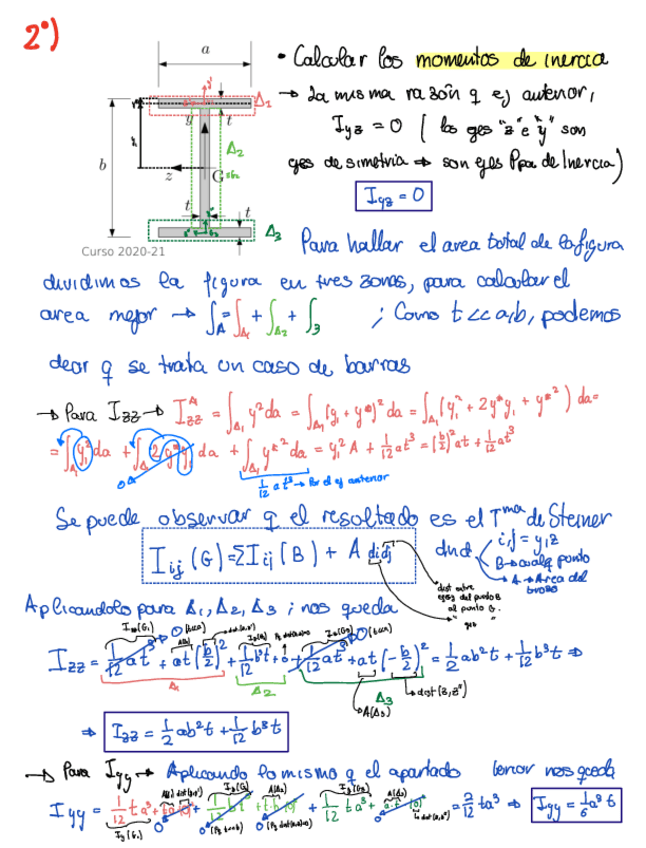 2º)
• Calcular los momentos de inercia
→ La misma razón q ej anterior,
I_yz = 0 (los ejes "z" e "y" son
ejes de simetría → son ejes Ppa de Inercia)
I_yz = 0
a
b
y
z
G
t
t
t
Δ1
Δ2
Δ3
Curso 2020-21
Para hallar el area total de la figura
dividimos la figura en tres zonas, para calcular el
area mejor → ∫_A = ∫_Δ1 + ∫_Δ2 + ∫_3 ; Como t << a,b, podemos
decir q se trata un caso de barras
→ Para I_zz → I_zz^Δ = ∫_Δ1 y² da = ∫_Δ1 (y₁ + y*)² da = ∫_Δ1 (y₁² + 2y*y₁ + y*²) da =
= ∫_Δ1 y₁² da + ∫_Δ 2y*y₁ da + ∫_Δ1 y*² da = y₁² A + 1/12 at³ = (b/2)² at + 1/12 at³
0
1/12 at³ → Por el ej anterior
Se puede observar q el resultado es el Tma de Steiner
I_ij (G) = Σ I_ij (B) + A di dj
dnd
i,j = y,z
B → cualq punto
A → Area del
dist entre
ejes del punto B
al punto G.
Aplicandolo para Δ1, Δ2, Δ3 ; nos queda
I_zz = 1/12 at³ + at (b/2)² + 1/12 b³t + 0 + 1/12 at³ + at (-b/2)² = 1/2 ab²t + 1/12 b³t ⇒
Δ1
Δ2
Δ3
A(Δ3)
⇒ I_zz = 1/2 ab²t + 1/12 b³t
→ Para I_yy → Aplicando lo mismo q el apartado nos queda
I_yy = 1/12 ta³ + ta (0) + 1/12 bt³ + t·b (0) + 1/12 ta³ + a·t (0) = 2/12 ta³ ⇒ I_yy = 1/6 a³t